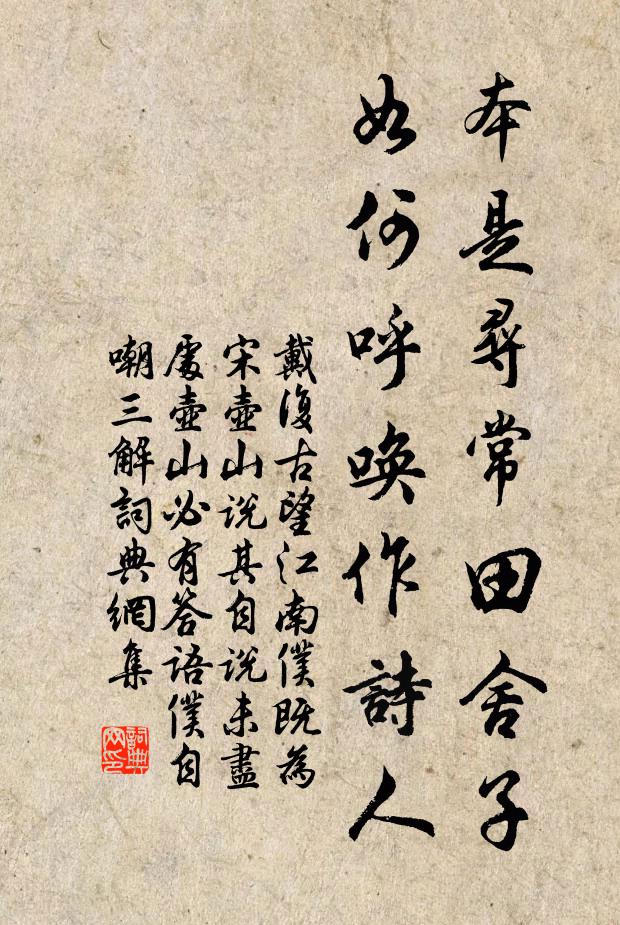 本是尋常田舍子
如何呼喚作詩人
戴復古望江南僕既為
宋壺山說其自說未盡
處壺山必有答語僕自
嘲三解詞典網集
詞典
网印